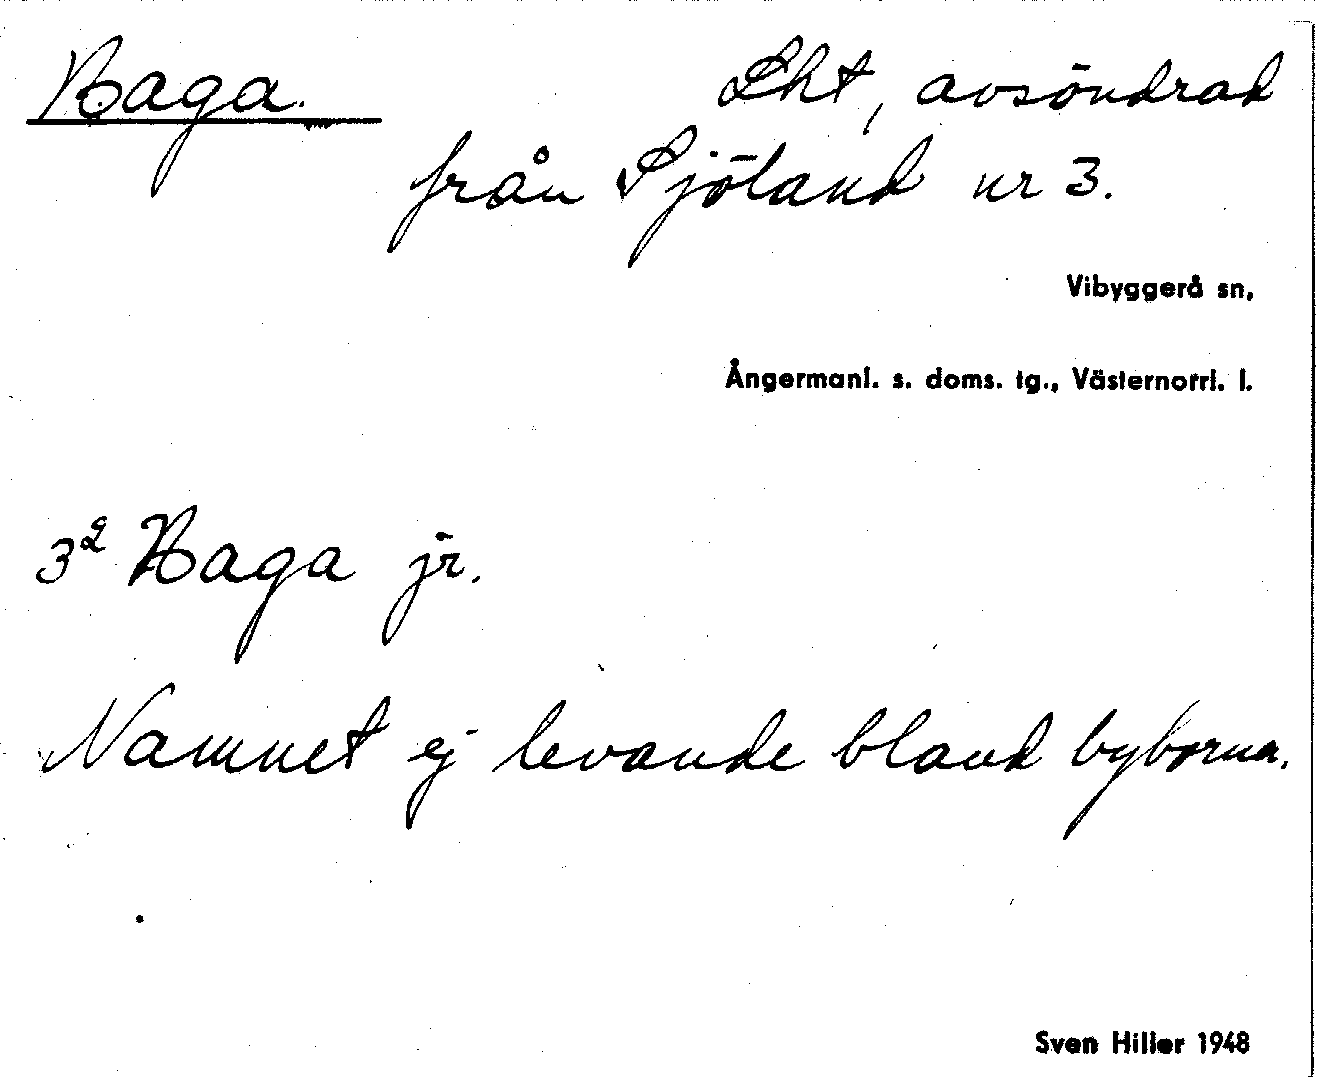 Haga. Lht, avsöndrad
från Sjöland nr 3.
Vibyggerå sn,
Ångermanl. s. doms. tg., Västernorrl. l.
3² Haga jr.
Namnet ej levande bland byborna.
Sven Hiller 1948